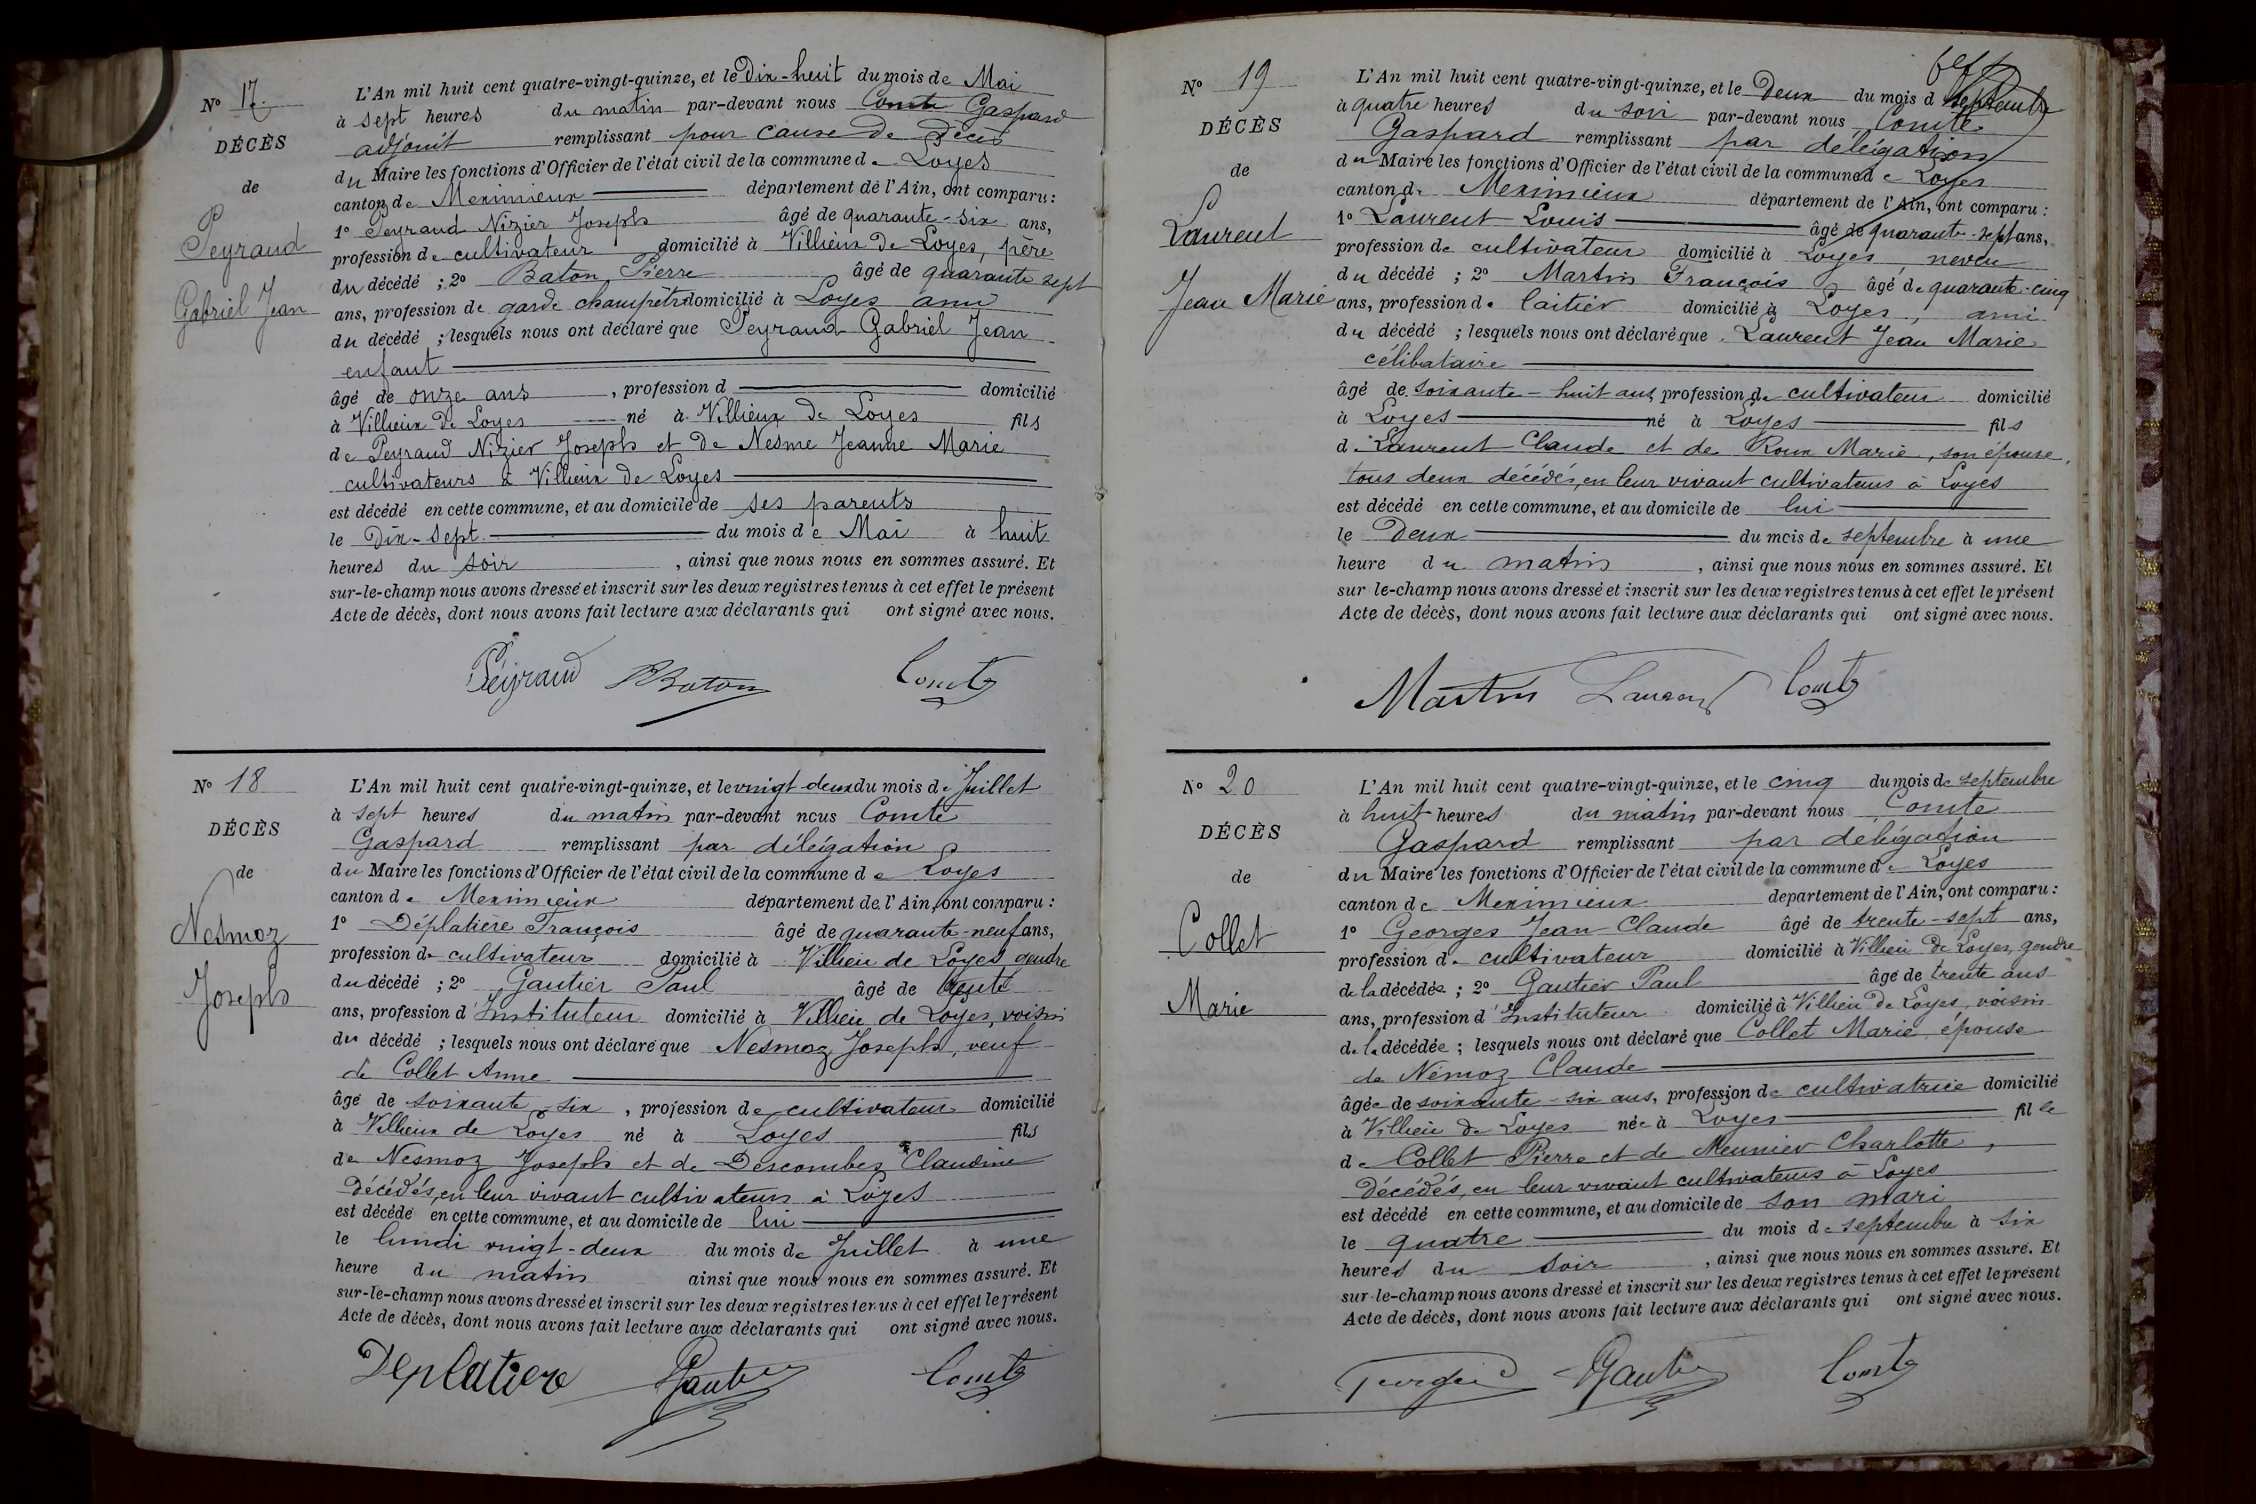 N° 17
DÉCÈS
de
Peyraud
Gabriel Jean
L'An mil huit cent quatre-vingt-quinze, et le Dix-huit du mois de Mai
à sept heures du matin par-devant nous Comte Gaspard
adjoint remplissant pour cause de Décès
du Maire les fonctions d'Officier de l'état civil de la commune de Loyes
canton de Meximieux département de l'Ain, ont comparu :
1° Peyraud Nizier Joseph âgé de quarante-six ans,
profession de cultivateur domicilié à Villieux de Loyes, père
du décédé ; 2° Baton Pierre âgé de quarante sept
ans, profession de garde champêtre domicilié à Loyes ami
du décédé ; lesquels nous ont déclaré que Peyraud Gabriel Jean
enfant
âgé de onze ans , profession d domicilié
à Villieux de Loyes né à Villieux de Loyes fils
de Peyraud Nizier Joseph et de Nesme Jeanne Marie
cultivateurs à Villieux de Loyes
est décédé en cette commune, et au domicile de ses parents
le Dix-sept du mois de Mai à huit
heures du soir , ainsi que nous nous en sommes assuré. Et
sur-le-champ nous avons dressé et inscrit sur les deux registres tenus à cet effet le présent
Acte de décès, dont nous avons fait lecture aux déclarants qui ont signé avec nous.
Péyraud PBaton Comte
N° 18
DÉCÈS
de
Nesmoz
Joseph
L'An mil huit cent quatre-vingt-quinze, et le vingt-deux du mois de Juillet
à sept heures du matin par-devant nous Comte
Gaspard remplissant par délégation
du Maire les fonctions d'Officier de l'état civil de la commune de Loyes
canton de Meximieux département de l'Ain, ont comparu :
1° Déplatière François âgé de quarante-neuf ans,
profession de cultivateur domicilié à Villieu de Loyes gendre
du décédé ; 2° Gautier Paul âgé de trente
ans, profession d'Instituteur domicilié à Villieu de Loyes, voisin
du décédé ; lesquels nous ont déclaré que Nesmoz Joseph, veuf
de Collet Anne
âgé de soixante six , profession de cultivateur domicilié
à Villieux de Loyes né à Loyes fils
de Nesmoz Joseph et de Descombes Claudine
Décédés, en leur vivant cultivateurs à Loyes
est décédé en cette commune, et au domicile de lui
le lundi vingt-deux du mois de Juillet à une
heure du matin ainsi que nous nous en sommes assuré. Et
sur-le-champ nous avons dressé et inscrit sur les deux registres tenus à cet effet le présent
Acte de décès, dont nous avons fait lecture aux déclarants qui ont signé avec nous.
Deplatiere PGautier Comte
N° 19
DÉCÈS
de
Laurent
Jean Marie
L'An mil huit cent quatre-vingt-quinze, et le Deux du mois d septembre
à quatre heures du soir par-devant nous Comte
Gaspard remplissant par délégation
du Maire les fonctions d'Officier de l'état civil de la commune de Loyes
canton de Meximieux département de l'Ain, ont comparu :
1° Laurent Louis âgé de quarante-sept ans,
profession de cultivateur domicilié à Loyes neveu
du décédé ; 2° Martin François âgé de quarante-cinq
ans, profession de laitier domicilié à Loyes, ami
du décédé ; lesquels nous ont déclaré que Laurent Jean Marie
célibataire
âgé de soixante-huit ans, profession de cultivateur domicilié
à Loyes né à Loyes fils
de Laurent Claude et de Roux Marie, son épouse,
tous deux décédés, en leur vivant cultivateurs à Loyes
est décédé en cette commune, et au domicile de lui
le Deux du mois de septembre à une
heure du matin , ainsi que nous nous en sommes assuré. Et
sur le-champ nous avons dressé et inscrit sur les deux registres tenus à cet effet le présent
Acte de décès, dont nous avons fait lecture aux déclarants qui ont signé avec nous.
Martin Laurent Comte
N° 20
DÉCÈS
de
Collet
Marie
L'An mil huit cent quatre-vingt-quinze, et le cinq du mois de septembre
à huit heures du matin par-devant nous Comte
Gaspard remplissant par délégation
du Maire les fonctions d'Officier de l'état civil de la commune de Loyes
canton de Meximieux département de l'Ain, ont comparu :
1° Georges Jean-Claude âgé de trente-sept ans,
profession de cultivateur domicilié à Villieu de Loyes, gendre
de la décédée ; 2° Gautier Paul âgé de trente ans
ans, profession d'Instituteur domicilié à Villieu de Loyes, voisin
de la décédée ; lesquels nous ont déclaré que Collet Marie épouse
de Némoz Claude
âgée de soixante-six ans, profession de cultivatrice domicilié
à Villieu de Loyes née à Loyes fille
de Collet Pierre et de Meunier Charlotte,
Décédés, en leur vivant cultivateurs à Loyes
est décédé en cette commune, et au domicile de son mari
le quatre du mois de septembre à six
heures du soir , ainsi que nous nous en sommes assuré. Et
sur-le-champ nous avons dressé et inscrit sur les deux registres tenus à cet effet le présent
Acte de décès, dont nous avons fait lecture aux déclarants qui ont signé avec nous.
Georges PGautier Comte